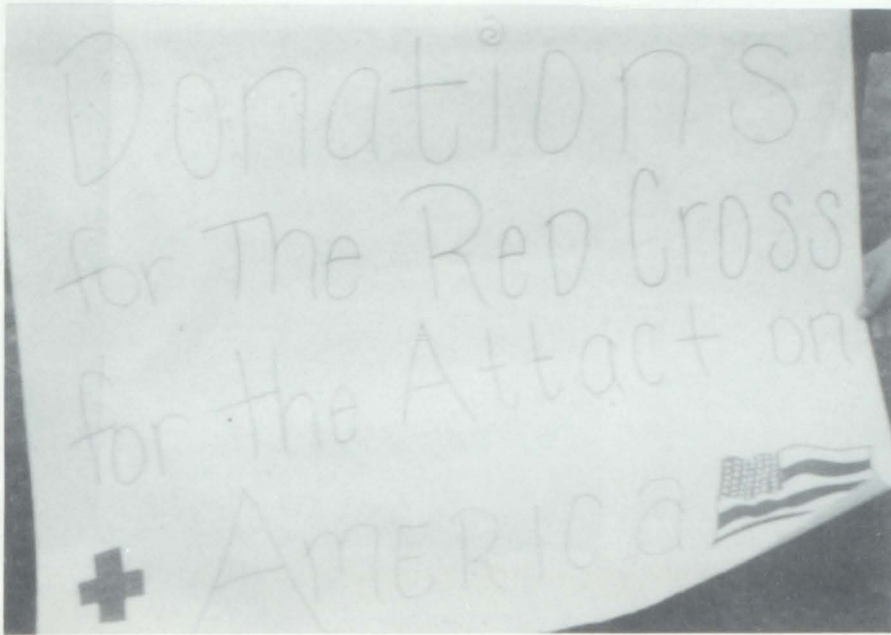 Donations
for The ReD Cross
for the Attact on
AmERICa